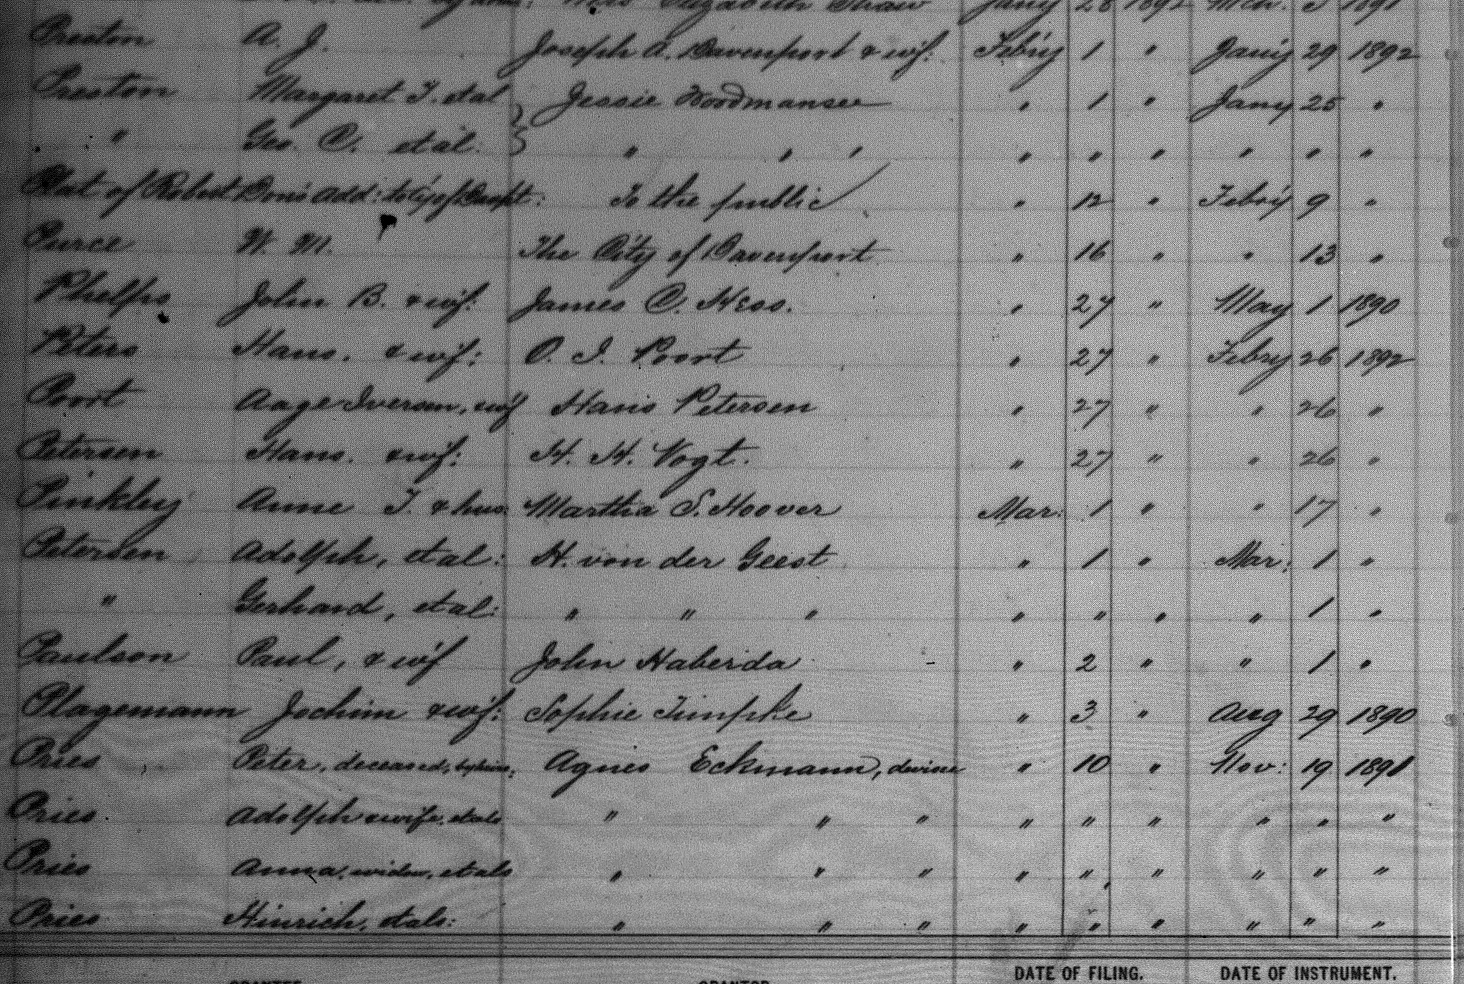 Mrs Elizabeth Shaw Jany 28 1892 Mch. 5 1891
Preston A. J. Joseph A. Davenport & wf: Febry 1 " Jany 29 1892
Preston Margaret T. etal } Jessie Woodmansee " 1 " Jany 25 "
" Geo. C. et al: } " " " " " " " " "
Plat of Robert Add: to City of Davpt: To the public " 12 " Febry 9 "
Purce W. M. The City of Davenport " 16 " " 13 "
Phelps John B. & wf: James C. Hess. " 27 " May 1 1890
Peters Hans. & wf: O. I. Poort " 27 " Febry 26 1892
Poort Aage Iversen, wf Hans Petersen " 27 " " 26 "
Petersen Hans. & wf: H. H. Vogt. " 27 " " 26 "
Pinkley Anne T. & hus: Martha S. Hoover Mar: 1 " " 17 "
Petersen Adolph, et al: H. von der Geest " 1 " Mar: 1 "
" Gerhard, et al: " " " " " " " 1 "
Paulson Paul, & wf John Haberda - " 2 " " 1 "
Plagemann Jochim & wf: Sophie Timpke " 3 " Aug 29 1890
Pries Peter, deceased, Agnes Eckmann, devisee " 10 " Nov: 19 1891
Pries Adolph & wife, et als " " " " " " " " "
Pries Anna, widow, et als " " " " " " " " "
Pries Hinrich, et als: " " " " " " " " "
DATE OF FILING. DATE OF INSTRUMENT.
GRANTEE GRANTOR